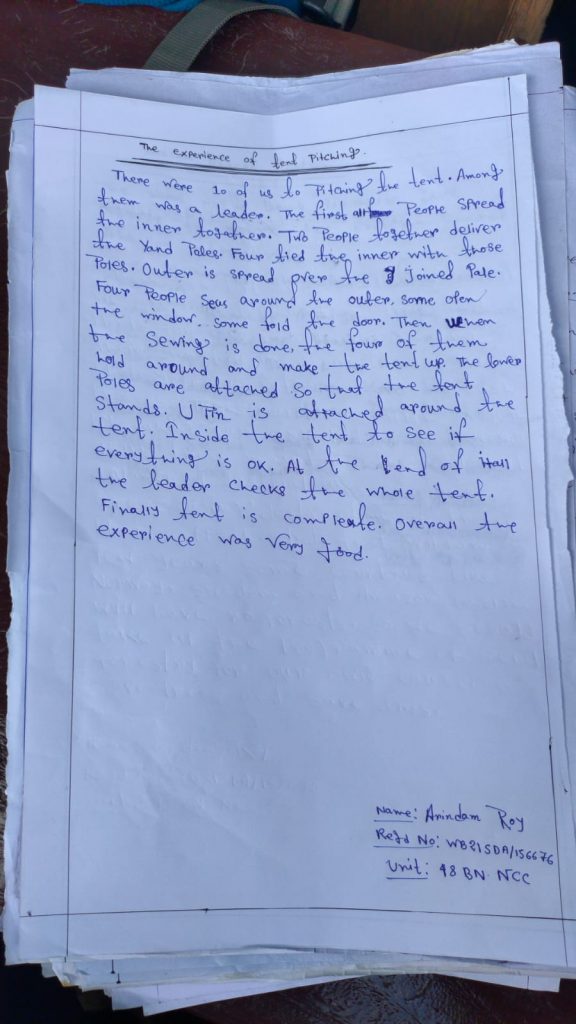 The experience of tent Pitching.
There were 10 of us to Pitching the tent. Among
them was a leader. The first People spread
the inner together. Two People together deliver
the Yand Poles. Four tied the inner with those
Poles. Outer is spread over the joined Pole.
Four People sews around the outer. some open
the window. some fold the door. Then when
the Sewing is done, the four of them
hold around and make the tent up. The lower
Poles are attached so that the tent
Stands. U Pin is attached around the
tent. Inside the tent to see if
everything is ok. At the end of it all
the leader checks the whole tent.
Finally tent is compleate. overall the
experience was very good.
Name: Arindam Roy
Regd No: WB21SDA/156676
Unit: 48 BN NCC